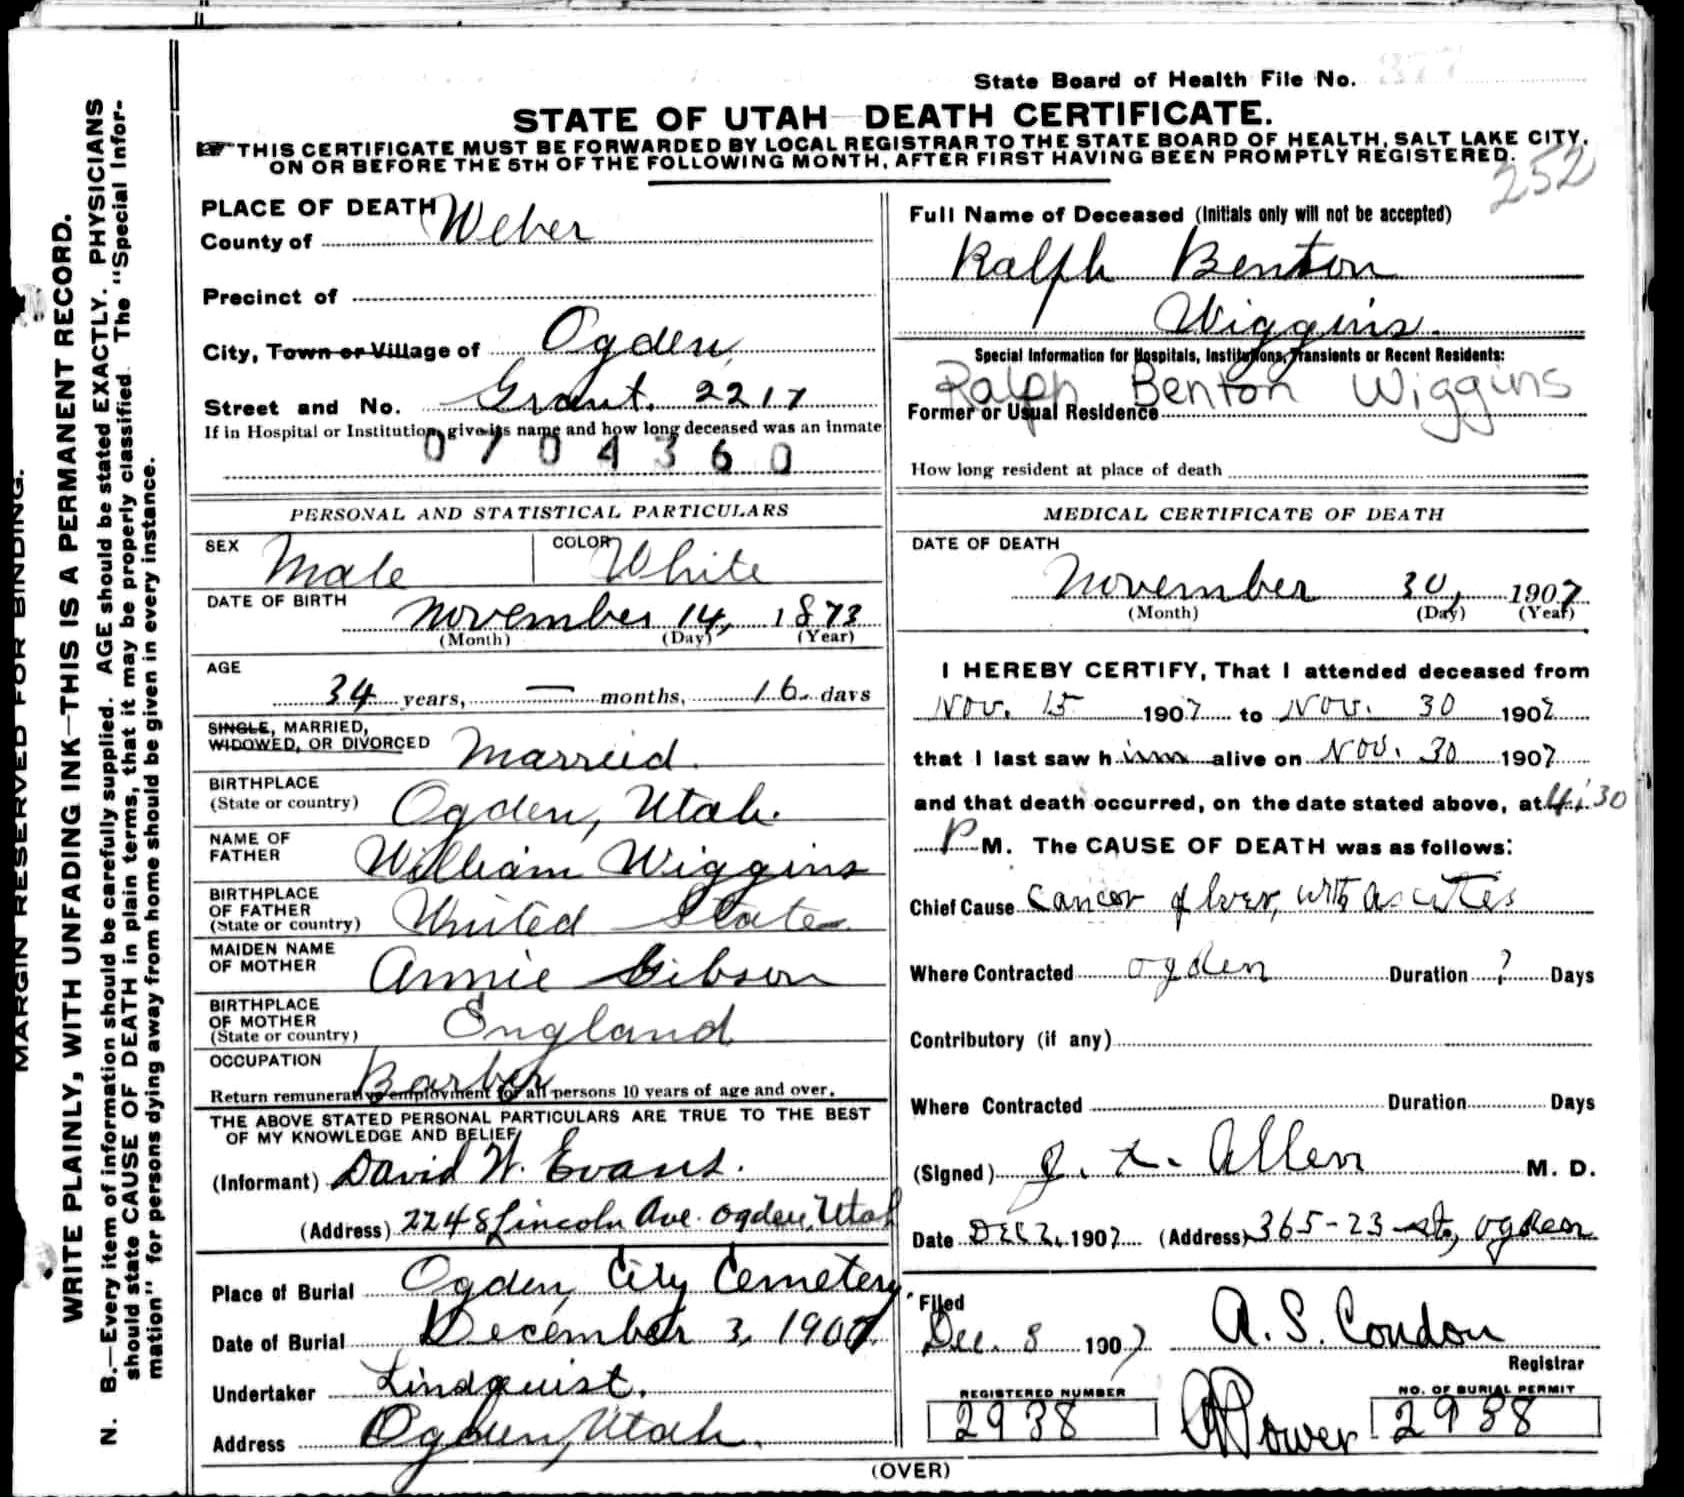 State Board of Health File No. 377
STATE OF UTAH—DEATH CERTIFICATE.
☞THIS CERTIFICATE MUST BE FORWARDED BY LOCAL REGISTRAR TO THE STATE BOARD OF HEALTH, SALT LAKE CITY,
ON OR BEFORE THE 5TH OF THE FOLLOWING MONTH, AFTER FIRST HAVING BEEN PROMPTLY REGISTERED.
252
MARGIN RESERVED FOR BINDING.
WRITE PLAINLY, WITH UNFADING INK—THIS IS A PERMANENT RECORD.
N. B.—Every item of information should be carefully supplied. AGE should be stated EXACTLY. PHYSICIANS
should state CAUSE OF DEATH in plain terms, that it may be properly classified. The "Special Infor-
mation" for persons dying away from home should be given in every instance.
PLACE OF DEATH
County of Weber
Precinct of
City, Town or Village of Ogden
Street and No. Grant. 2217
If in Hospital or Institution, give its name and how long deceased was an inmate
0704360
PERSONAL AND STATISTICAL PARTICULARS
SEX Male COLOR White
DATE OF BIRTH
November 14, 1873
(Month) (Day) (Year)
AGE
34 years, — months, 16 days
SINGLE, MARRIED,
WIDOWED, OR DIVORCED Married.
BIRTHPLACE
(State or country) Ogden, Utah.
NAME OF
FATHER William Wiggins
BIRTHPLACE
OF FATHER
(State or country) United States
MAIDEN NAME
OF MOTHER Annie Gibson
BIRTHPLACE
OF MOTHER
(State or country) England
OCCUPATION Barber
Return remunerative employment for all persons 10 years of age and over.
THE ABOVE STATED PERSONAL PARTICULARS ARE TRUE TO THE BEST
OF MY KNOWLEDGE AND BELIEF
(Informant) David W. Evans.
(Address) 2248 Lincoln Ave. Ogden, Utah
Place of Burial Ogden City Cemetery
Date of Burial December 3, 1907.
Undertaker Lindquist.
Address Ogden, Utah.
Full Name of Deceased (Initials only will not be accepted)
Ralph Benton
Wiggins.
Special Information for Hospitals, Institutions, Transients or Recent Residents:
Ralph Benton Wiggins
Former or Usual Residence
How long resident at place of death
MEDICAL CERTIFICATE OF DEATH
DATE OF DEATH
November 30, 1907
(Month) (Day) (Year)
I HEREBY CERTIFY, That I attended deceased from
Nov. 15 1907 to Nov. 30 1907
that I last saw him alive on Nov. 30 1907
and that death occurred, on the date stated above, at 4:30
P M. The CAUSE OF DEATH was as follows:
Chief Cause Cancer of liver, with ascites
Where Contracted Ogden Duration ? Days
Contributory (if any)
Where Contracted Duration Days
(Signed) Allen M. D.
Date Dec 2, 1907 (Address) 365-23 st, Ogden
Filed
Dec. 8 1907 A. S. Condon
Registrar
REGISTERED NUMBER
2938
Power
NO. OF BURIAL PERMIT
2938
(OVER)